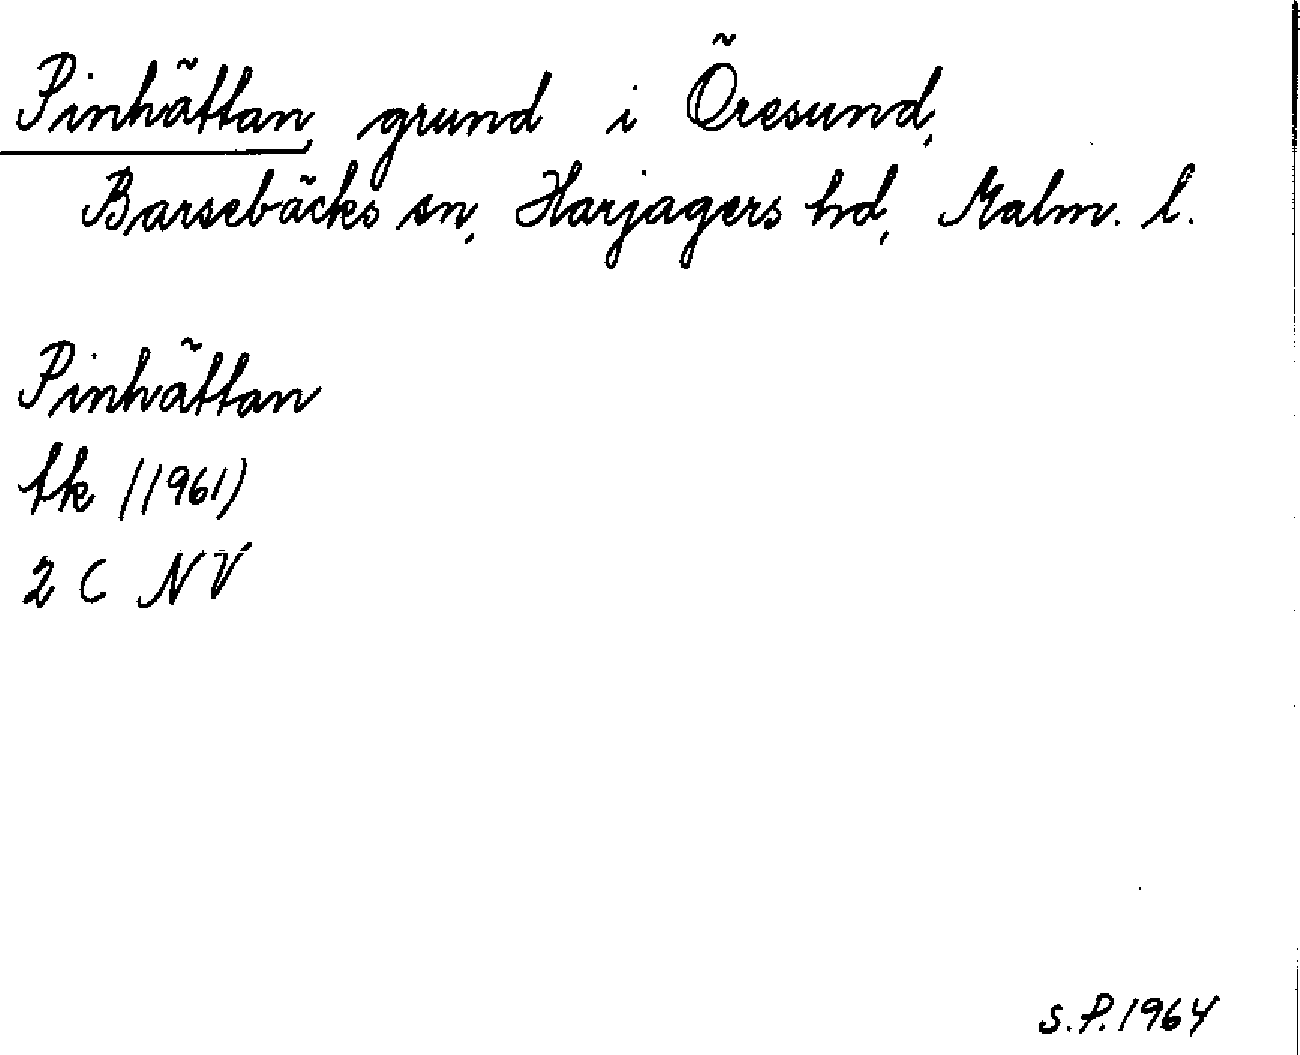 Pinhättan, grund i Öresund,
Barsebäcks sn, Harjagers hd, Malm. l.
Pinhättan
tk (1961)
2 C NV
S.P. 1964